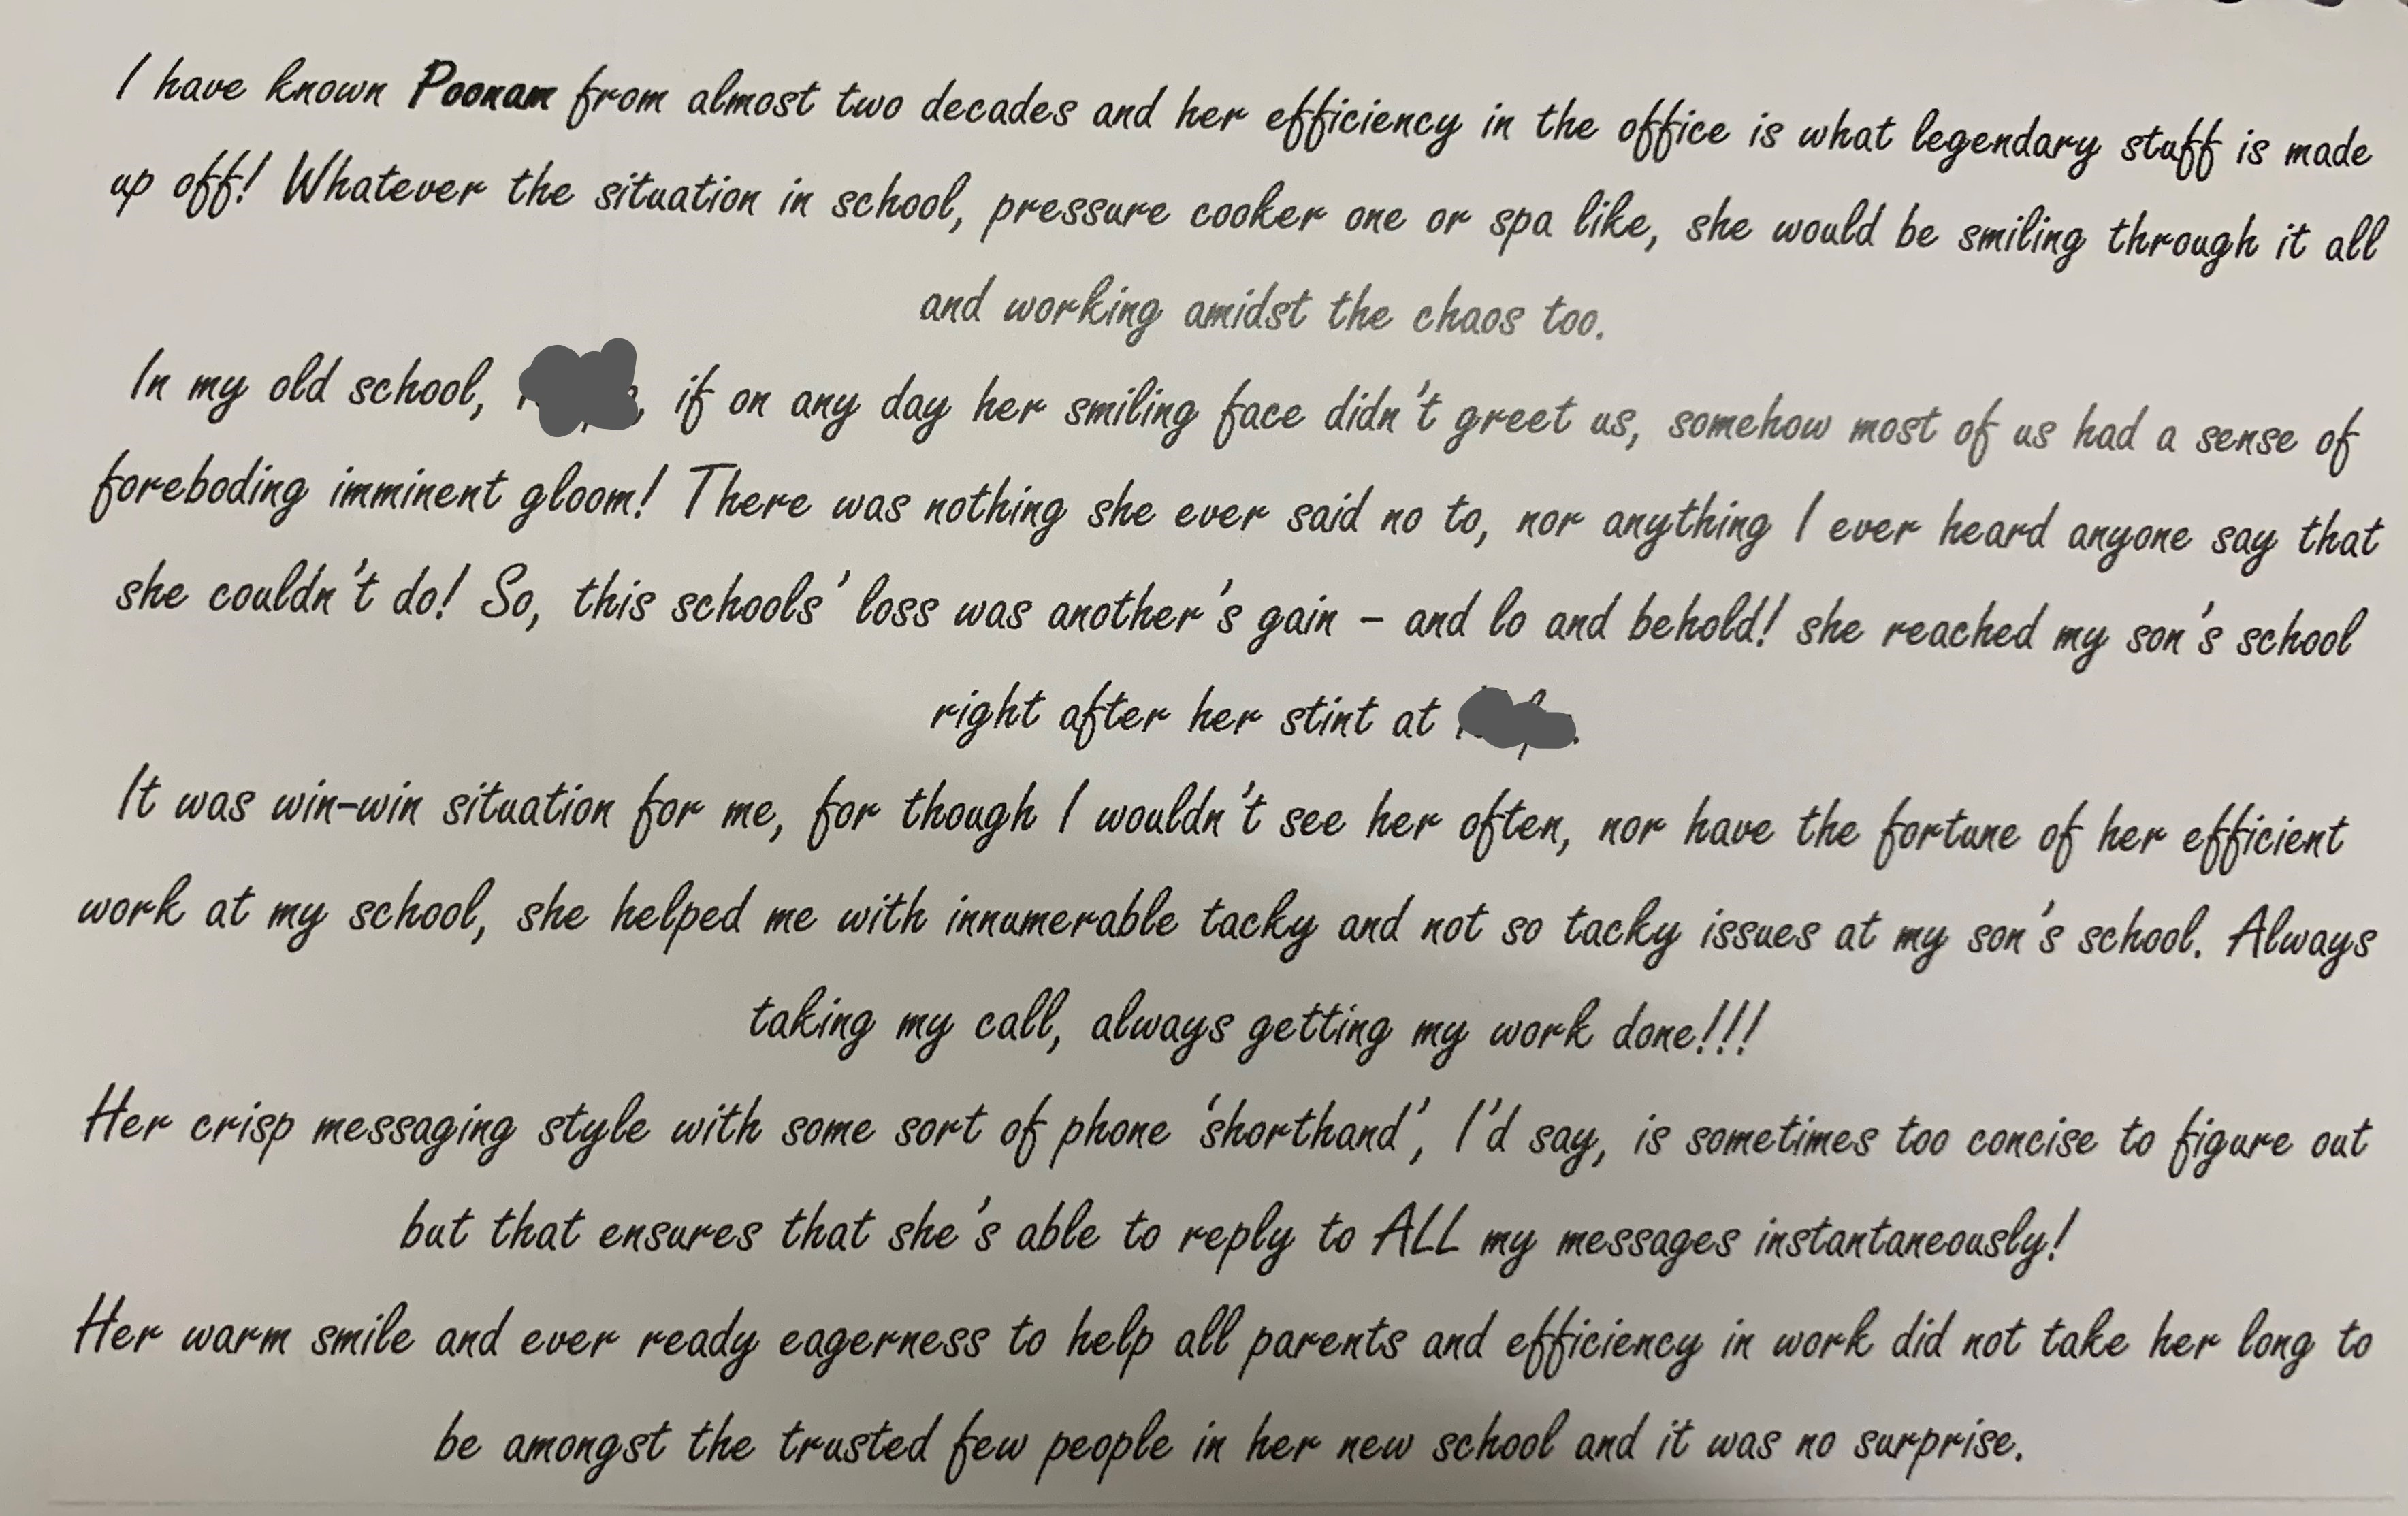 I have known Poonam from almost two decades and her efficiency in the office is what legendary stuff is made
up off! Whatever the situation in school, pressure cooker one or spa like, she would be smiling through it all
and working amidst the chaos too.
In my old school, if on any day her smiling face didn't greet us, somehow most of us had a sense of
foreboding imminent gloom! There was nothing she ever said no to, nor anything I ever heard anyone say that
she couldn't do! So, this schools' loss was another's gain – and lo and behold! she reached my son's school
right after her stint at
It was win-win situation for me, for though I wouldn't see her often, nor have the fortune of her efficient
work at my school, she helped me with innumerable tacky and not so tacky issues at my son's school. Always
taking my call, always getting my work done!!!
Her crisp messaging style with some sort of phone 'shorthand', I'd say, is sometimes too concise to figure out
but that ensures that she's able to reply to ALL my messages instantaneously!
Her warm smile and ever ready eagerness to help all parents and efficiency in work did not take her long to
be amongst the trusted few people in her new school and it was no surprise.